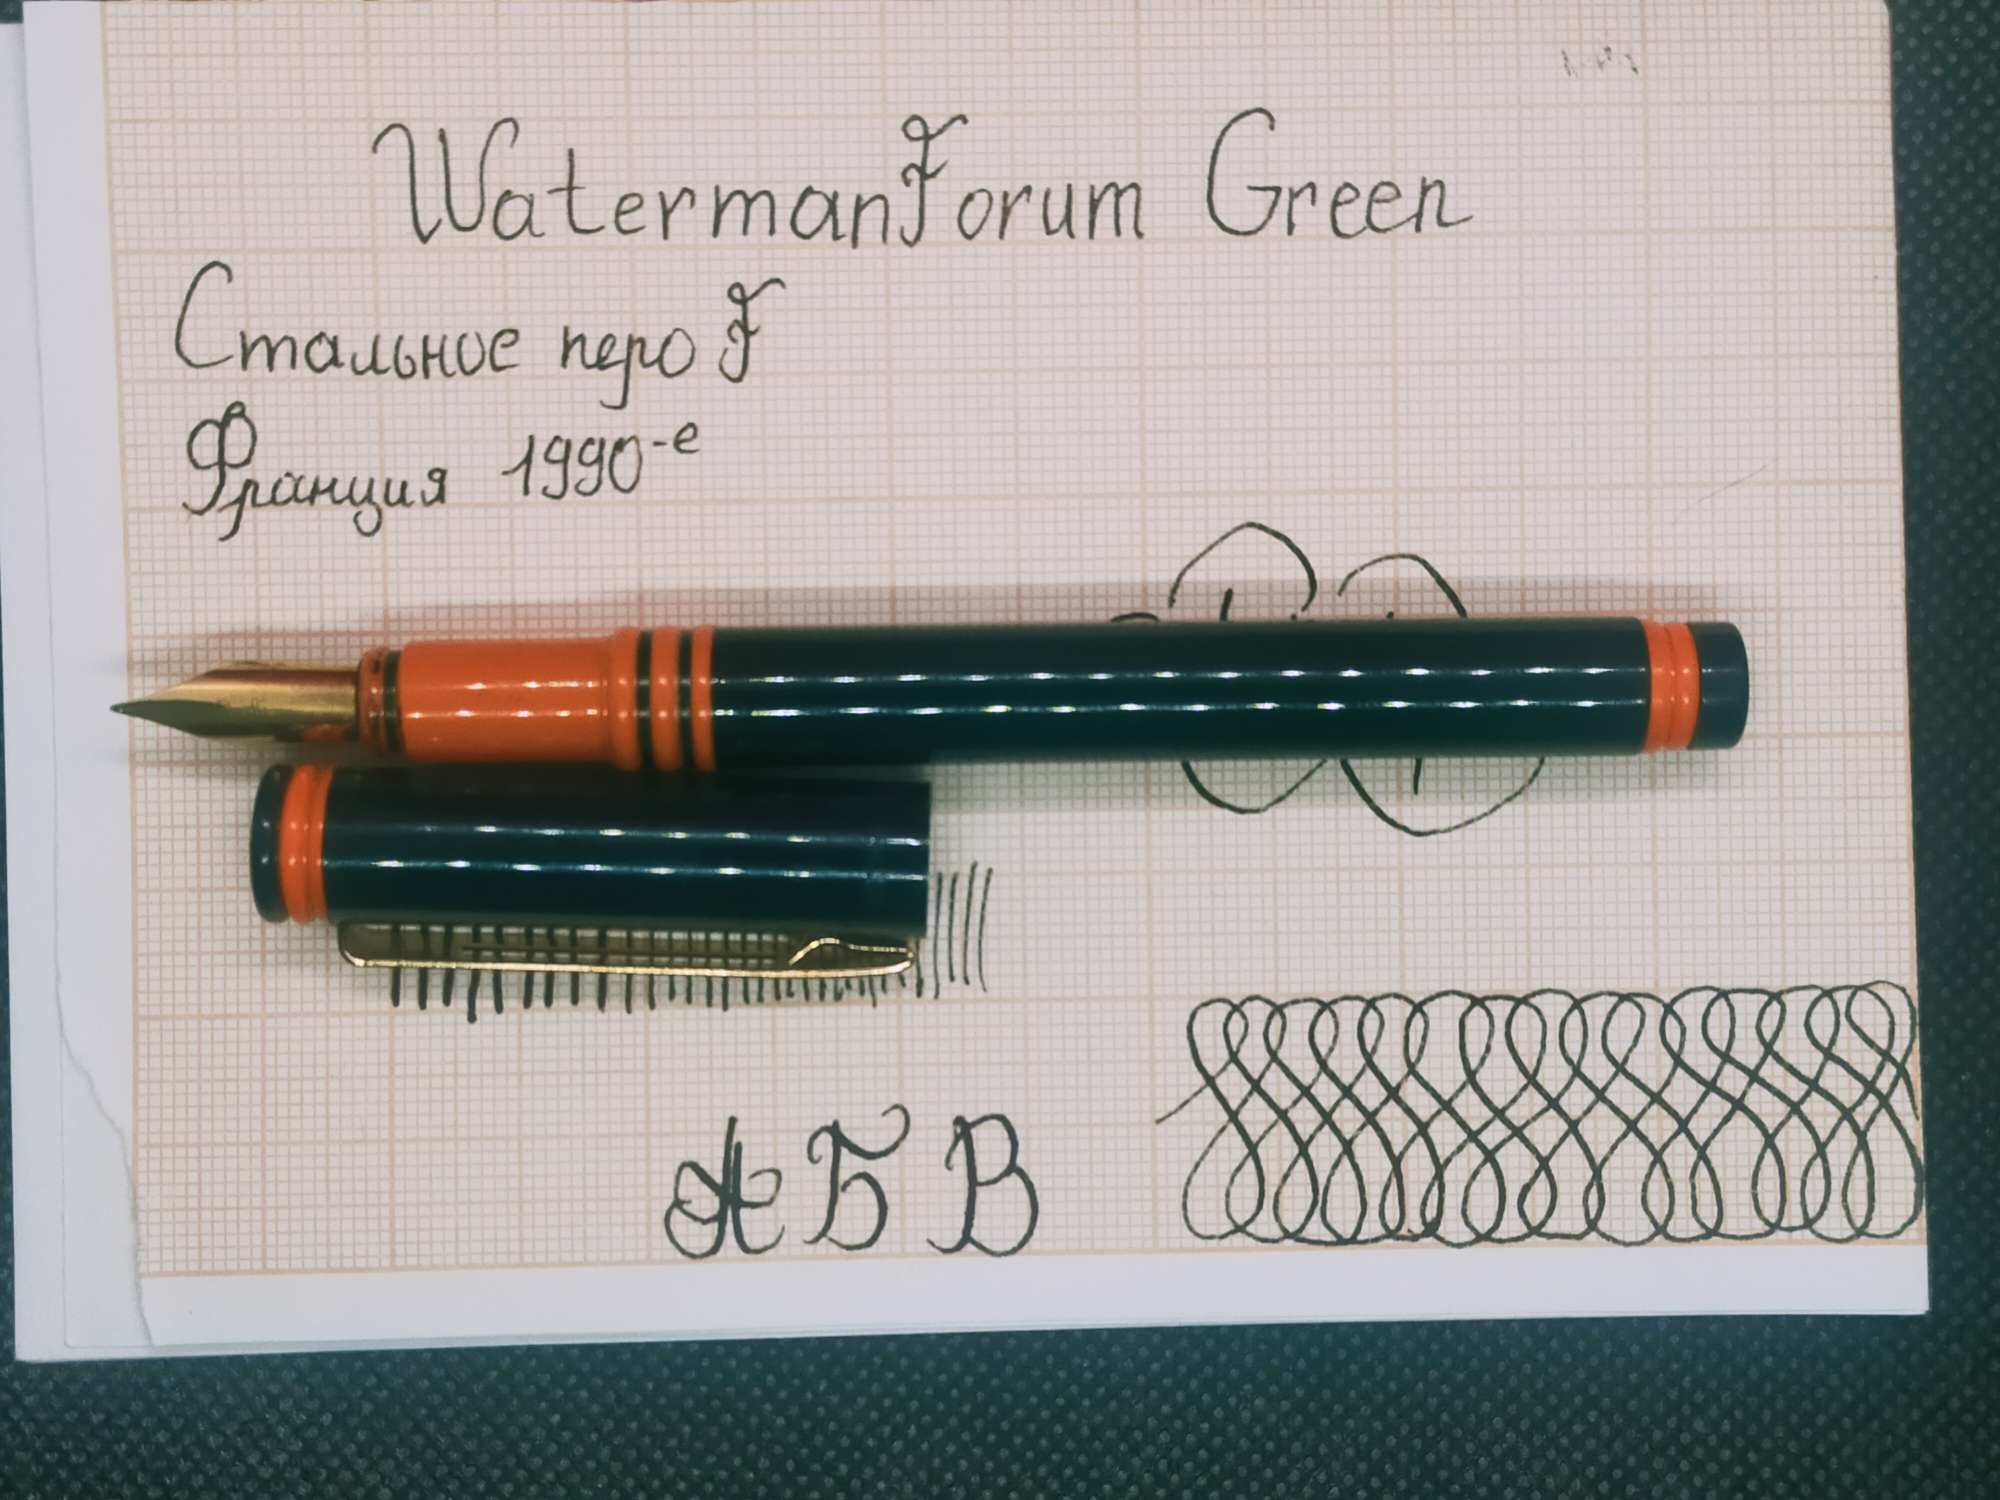 Waterman Forum Green
Стальное перо F
Франция 1990-е
А Б В